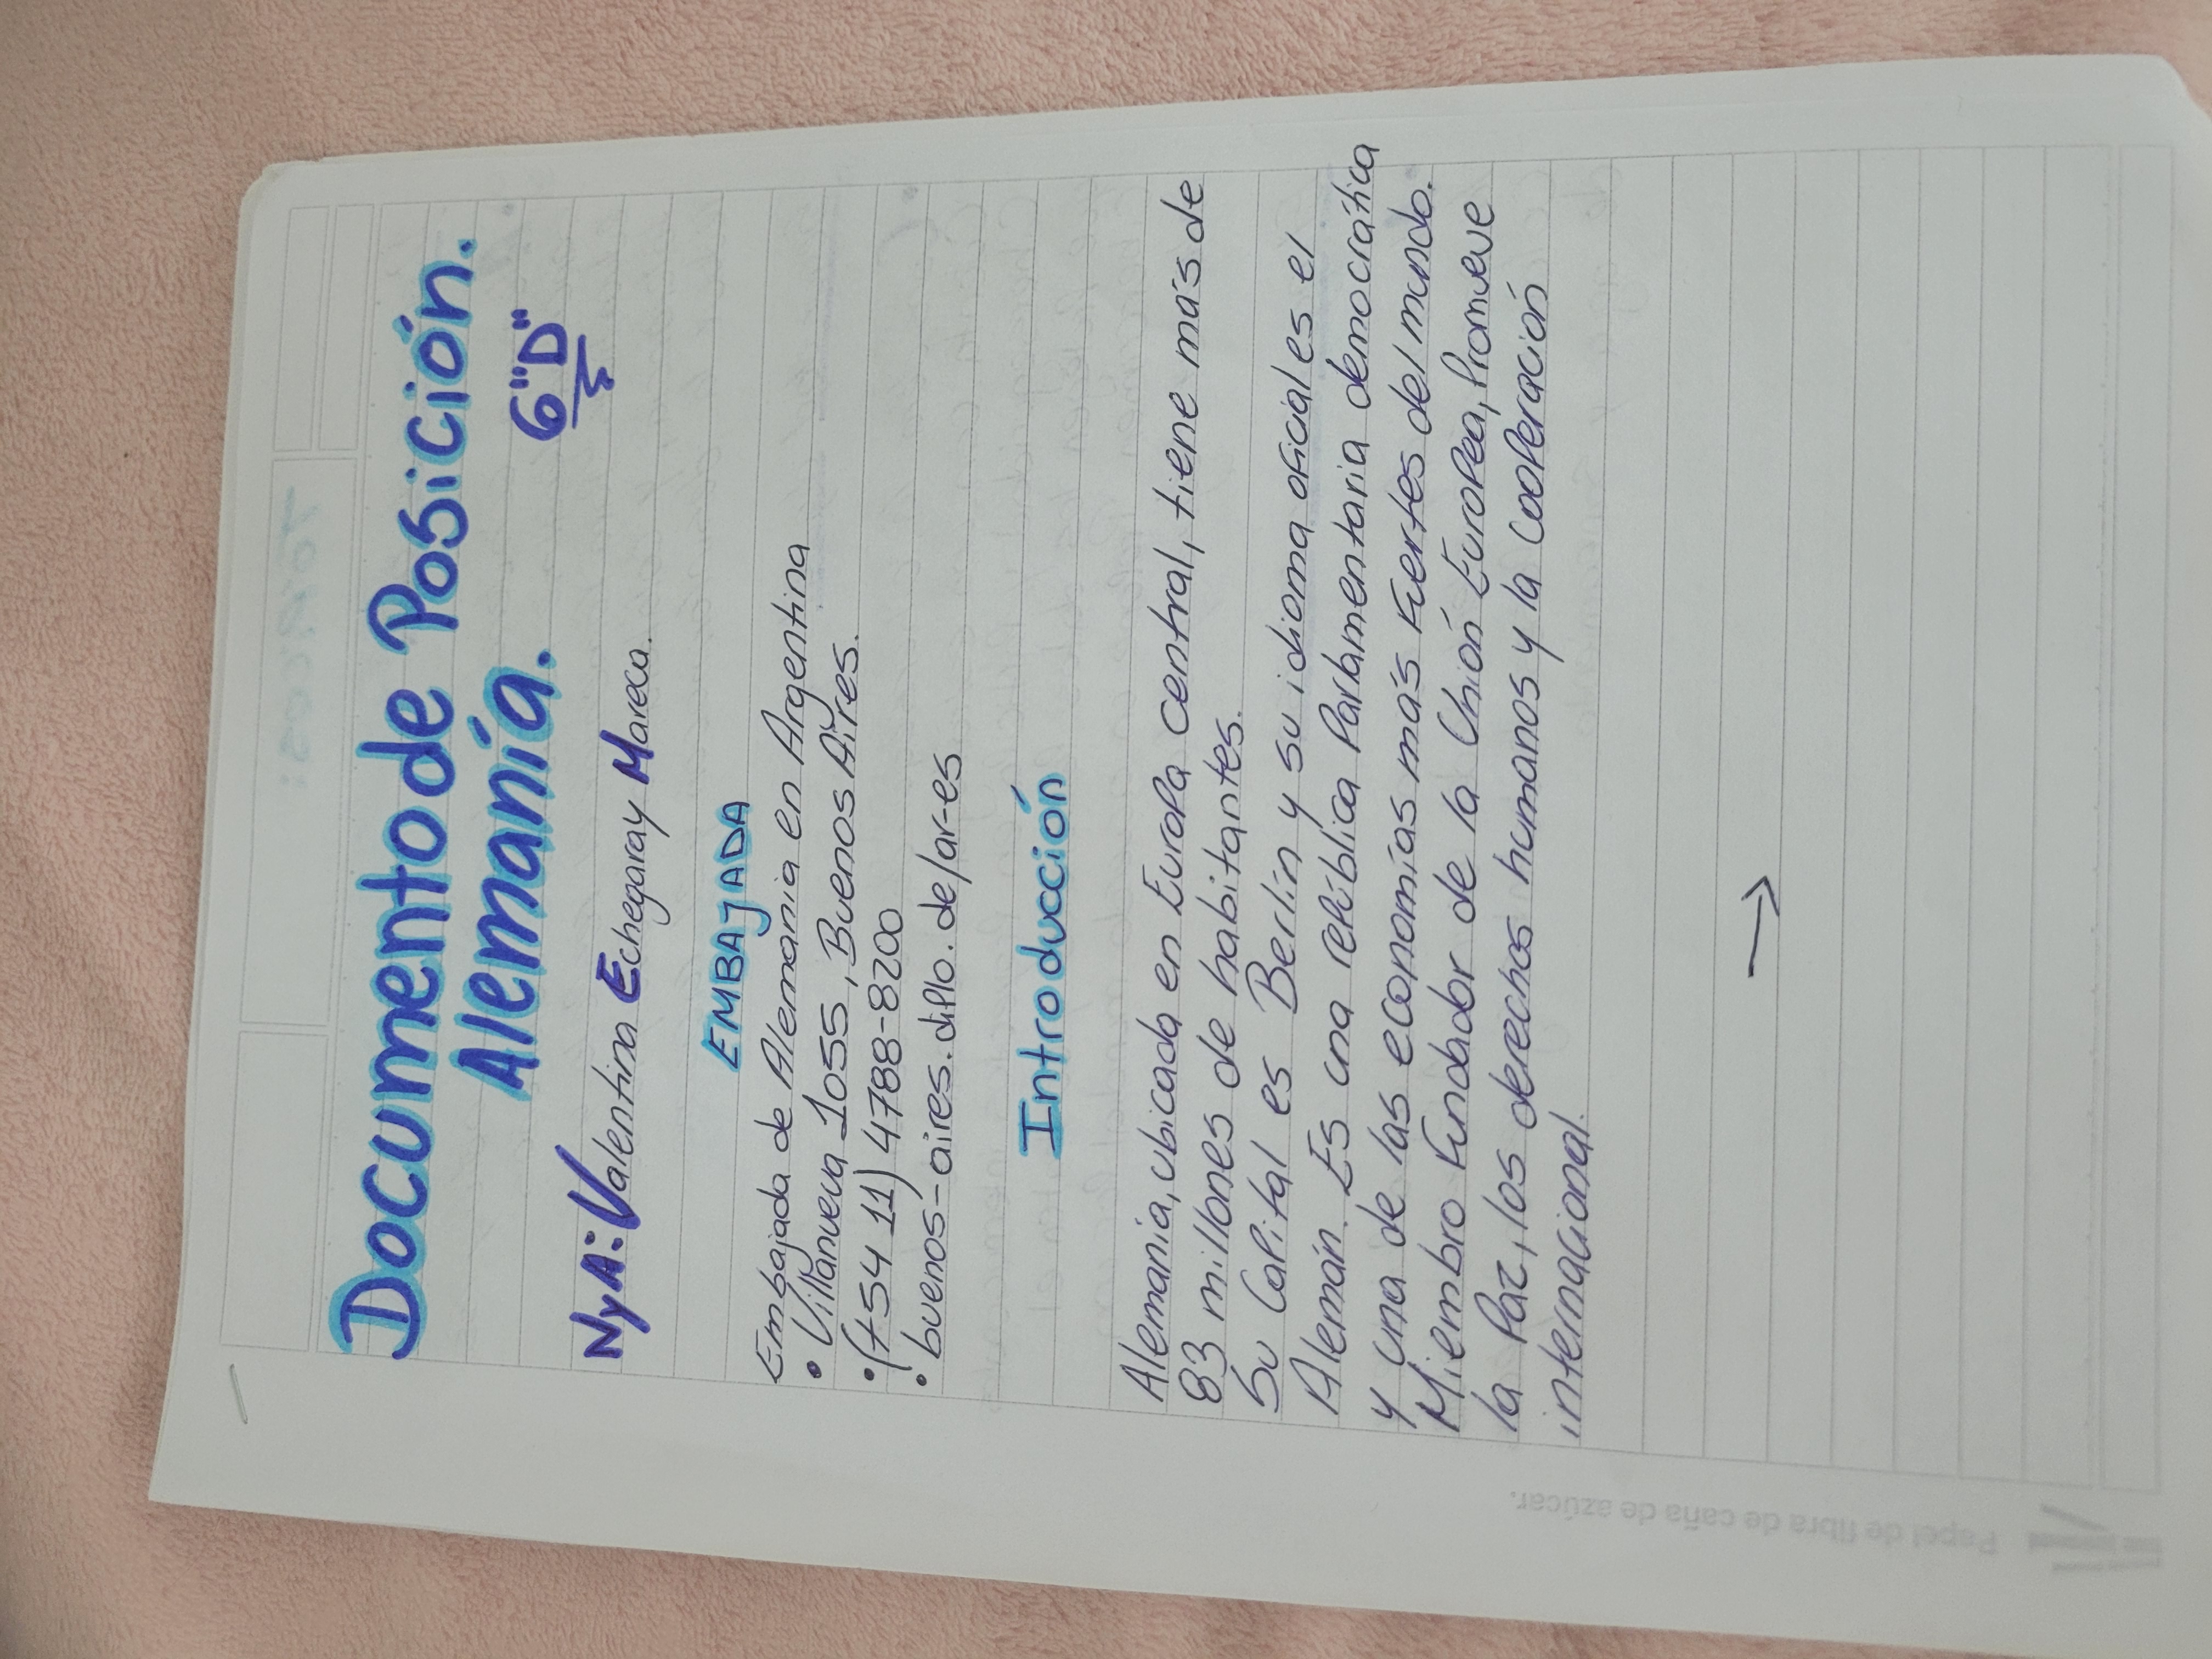 Documento de Posición.
Alemanía.
6"D"
NyA: Valentina Echegaray Mareca.
EMBAJADA
Embajada de Alemania en Argentina
• Villanueva 1055, Buenos Aires.
• (+54 11) 4788-8200
• buenos-aires.diplo.de/ar-es
Introducción
Alemania, ubicada en Europa central, tiene más de
83 millones de habitantes.
Su Capital es Berlín y su idioma oficial es el
Alemán. Es una república Parlamentaria democrática
y una de las economías más fuertes del mundo.
Miembro fundador de la Unión Europea, Promueve
la Paz, los derechos humanos y la Cooperación
internacional.
Papel de fibra de caña de azúcar.